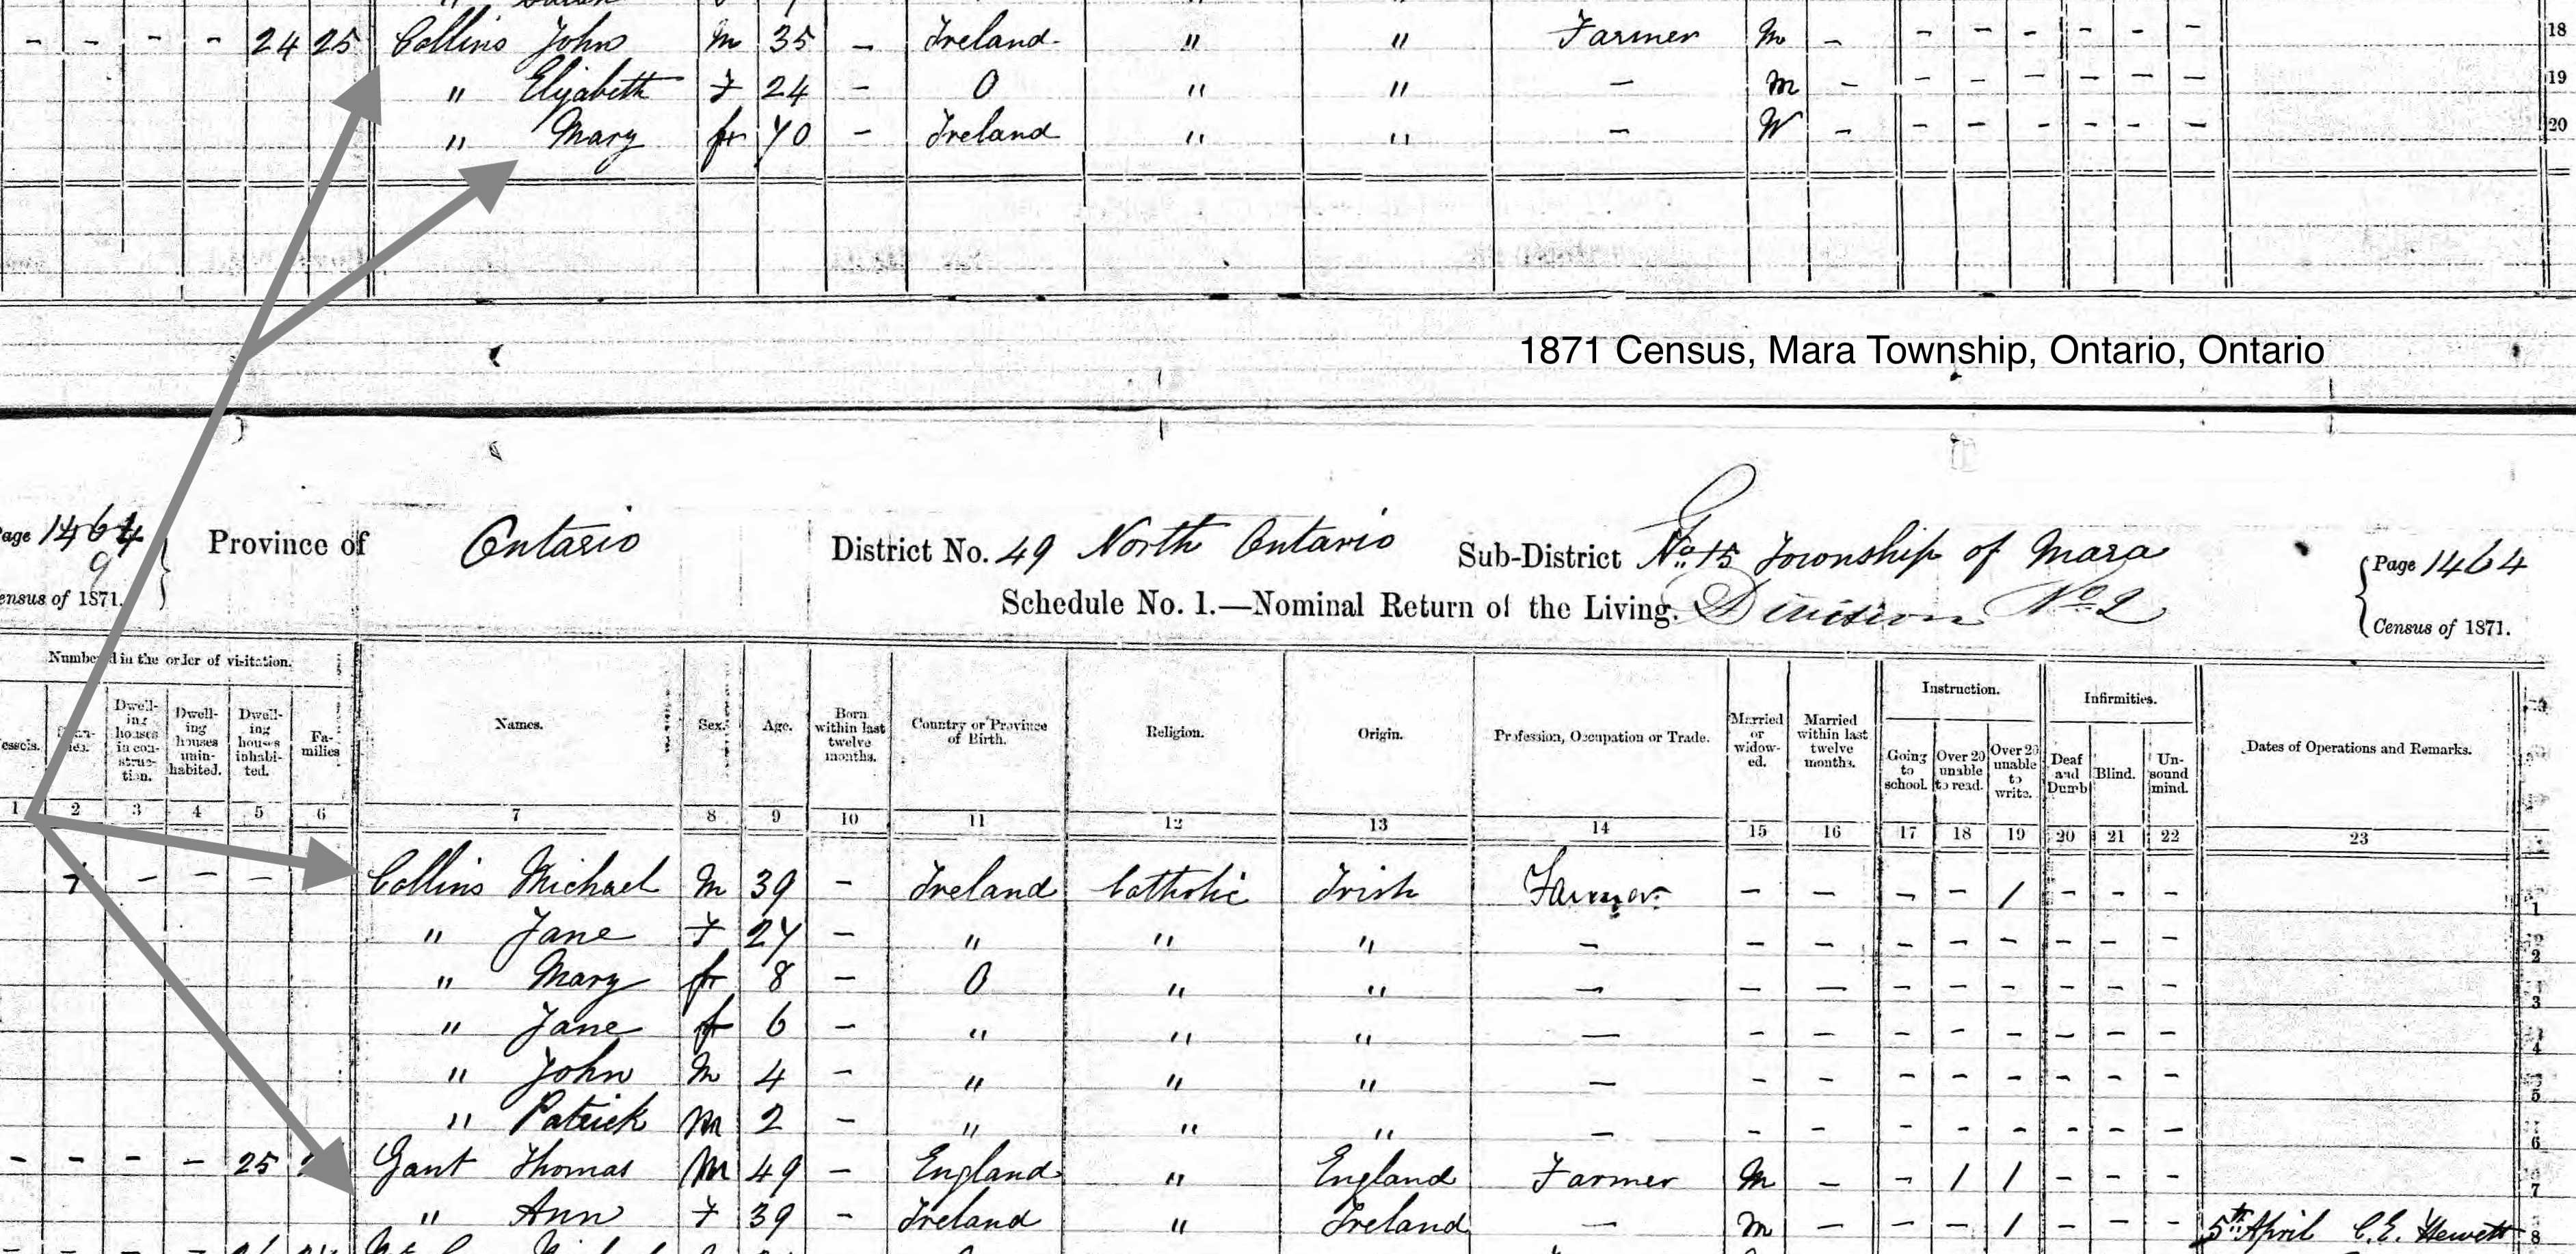 " Sarah
- - - - 24 25 Collins John m 35 - Ireland " " Farmer m - - - - - - - 18
" Elizabeth F 24 - O " " - m - - - - - - - 19
" Mary fr 70 - Ireland " " - W - - - - - - - 20
1871 Census, Mara Township, Ontario, Ontario
Page 1464 Province of Ontario District No. 49 North Ontario Sub-District No. 15 Township of Mara Page 1464
9
Census of 1871. Schedule No. 1.—Nominal Return of the Living. Division No. 2 Census of 1871.
Numbered in the order of visitation.
Dwelling houses in construction. Dwelling houses uninhabited. Dwelling houses inhabited. Families Names. Sex. Age. Born within last twelve months. Country or Province of Birth. Religion. Origin. Profession, Occupation or Trade. Married or widowed. Married within last twelve months. Instruction. Going to school. Over 20 unable to read. Over 20 unable to write. Infirmities. Deaf and Dumb Blind. Unsound mind. Dates of Operations and Remarks.
1 2 3 4 5 6 7 8 9 10 11 12 13 14 15 16 17 18 19 20 21 22 23
- - - Collins Michael M 39 - Ireland Catholic Irish Farmer - - - - / - - - 1
" Jane F 27 - " " " - - - - - - - - - 2
" Mary fr 8 - O " " - - - - - - - - - 3
" Jane fr 6 - " " " - - - - - - - - - 4
" John M 4 - " " " - - - - - - - - - 5
" Patrick M 2 - " " " - - - - - - - - - 6
- - - - 25 Gant Thomas M 49 - England " England Farmer M - - / / - - - 7
" Ann F 39 - Ireland " Ireland - M - - - / - - - 5th April C.E. Hewett 8